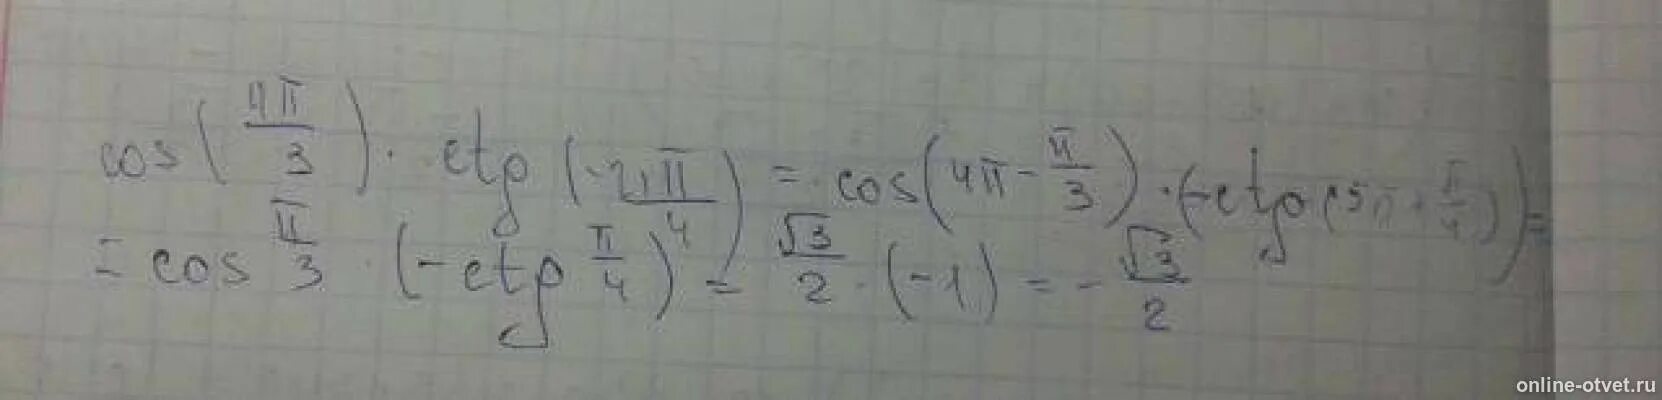 cos(11π/3) · ctg(-21π/4) = cos(4π - π/3) · (-ctg(5π + π/4)) =
= cos π/3 · (-ctg π/4) = √3/2 · (-1) = - √3/2
online-otvet.ru